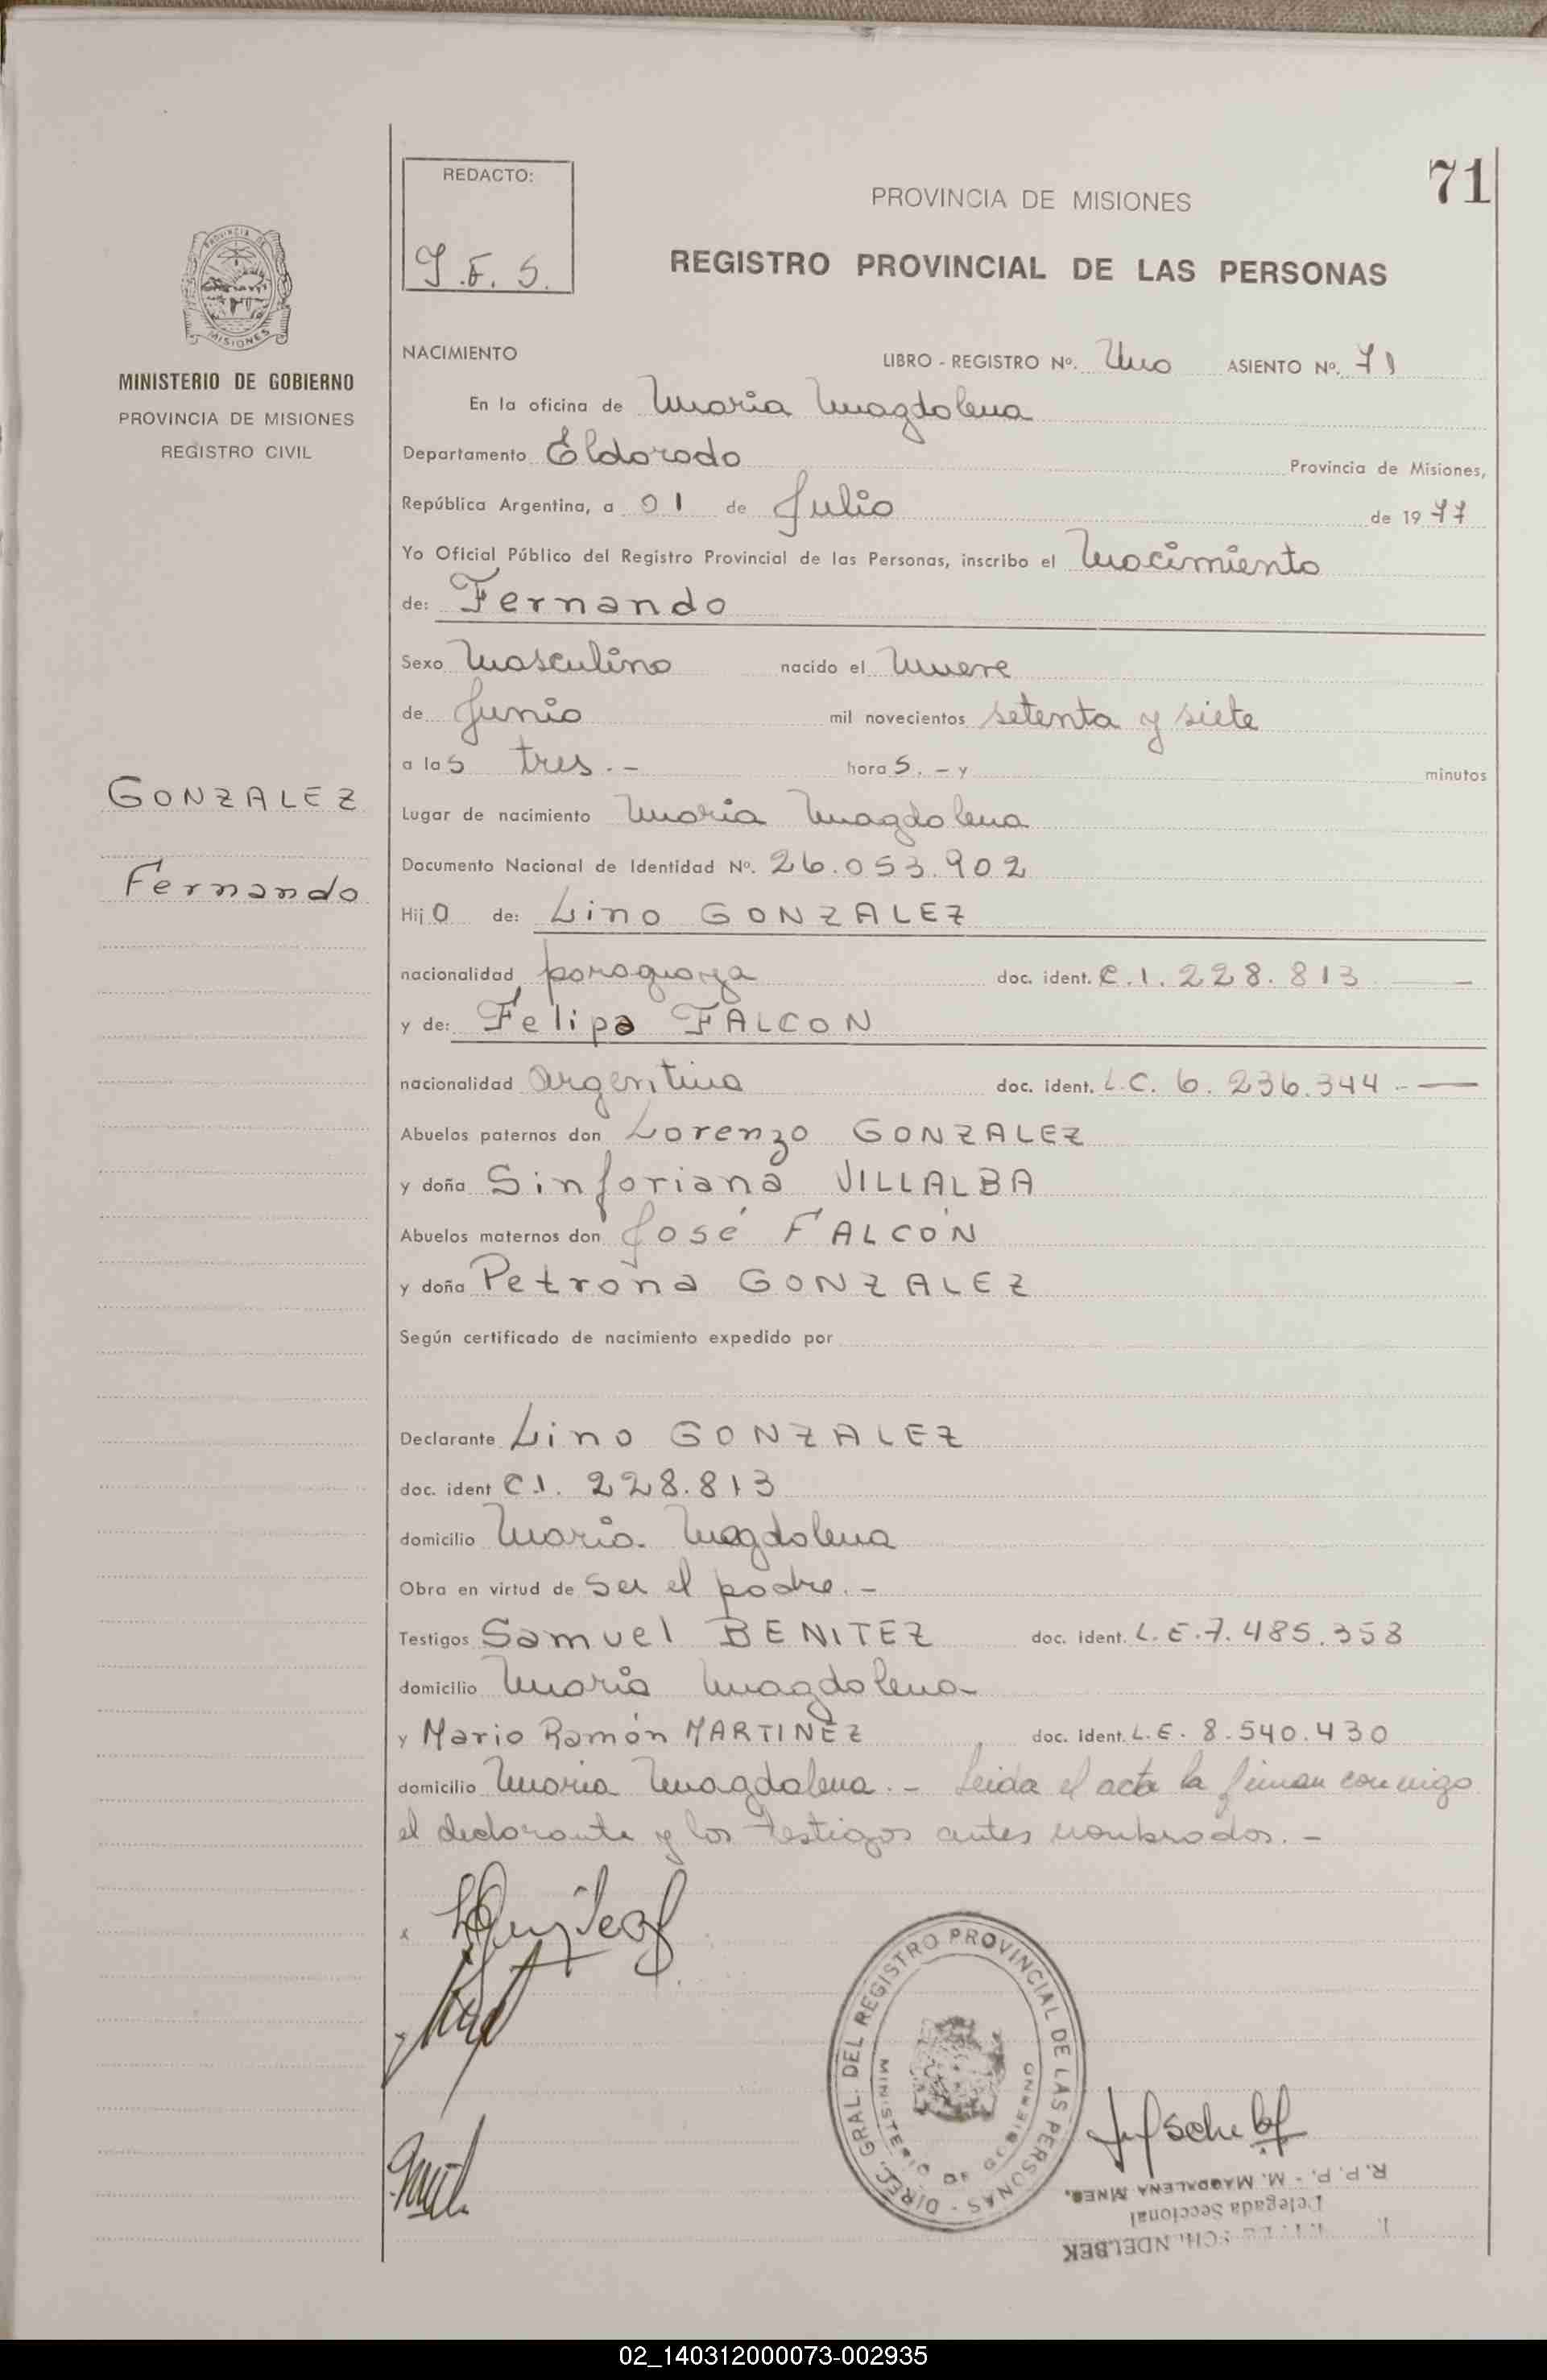 71
REDACTO:
PROVINCIA DE MISIONES
J.F.S.
REGISTRO PROVINCIAL DE LAS PERSONAS
PROVINCIA DE
MISIONES
MINISTERIO DE GOBIERNO
PROVINCIA DE MISIONES
REGISTRO CIVIL
GONZALEZ
Fernando
NACIMIENTO LIBRO - REGISTRO Nº. Uno ASIENTO Nº. 71
En la oficina de María Magdalena
Departamento Eldorado Provincia de Misiones,
República Argentina, a 01 de Julio de 1977
Yo Oficial Público del Registro Provincial de las Personas, inscribo el Nacimiento
de: Fernando
Sexo Masculino nacido el Nueve
de Junio mil novecientos setenta y siete
a las tres.- horas.- y minutos
Lugar de nacimiento María Magdalena
Documento Nacional de Identidad Nº. 26.053.902
Hijo de: Lino GONZALEZ
nacionalidad paraguaya doc. ident. C.I. 228.813 —
y de: Felipa FALCON
nacionalidad argentina doc. ident. L.C. 6.236.344.-—
Abuelos paternos don Lorenzo GONZALEZ
y doña Sinforiana VILLALBA
Abuelos maternos don José FALCÓN
y doña Petrona GONZALEZ
Según certificado de nacimiento expedido por
Declarante Lino GONZALEZ
doc. ident C.I. 228.813
domicilio María Magdalena
Obra en virtud de ser el padre.-
Testigos Samuel BENITEZ doc. ident. L.E. 7.485.353
domicilio María Magdalena
y Mario Ramón MARTINEZ doc. ident. L.E. 8.540.430
domicilio María Magdalena.- Leida el acta la firman conmigo
el declarante y los testigos antes nombrados.-
DIREC. GRAL. DEL REGISTRO PROVINCIAL DE LAS PERSONAS -
MINISTERIO DE GOBIERNO
R.P.P. - M. MAGDALENA MNES.
Delegada Seccional
NDELBEK
02_140312000073-002935